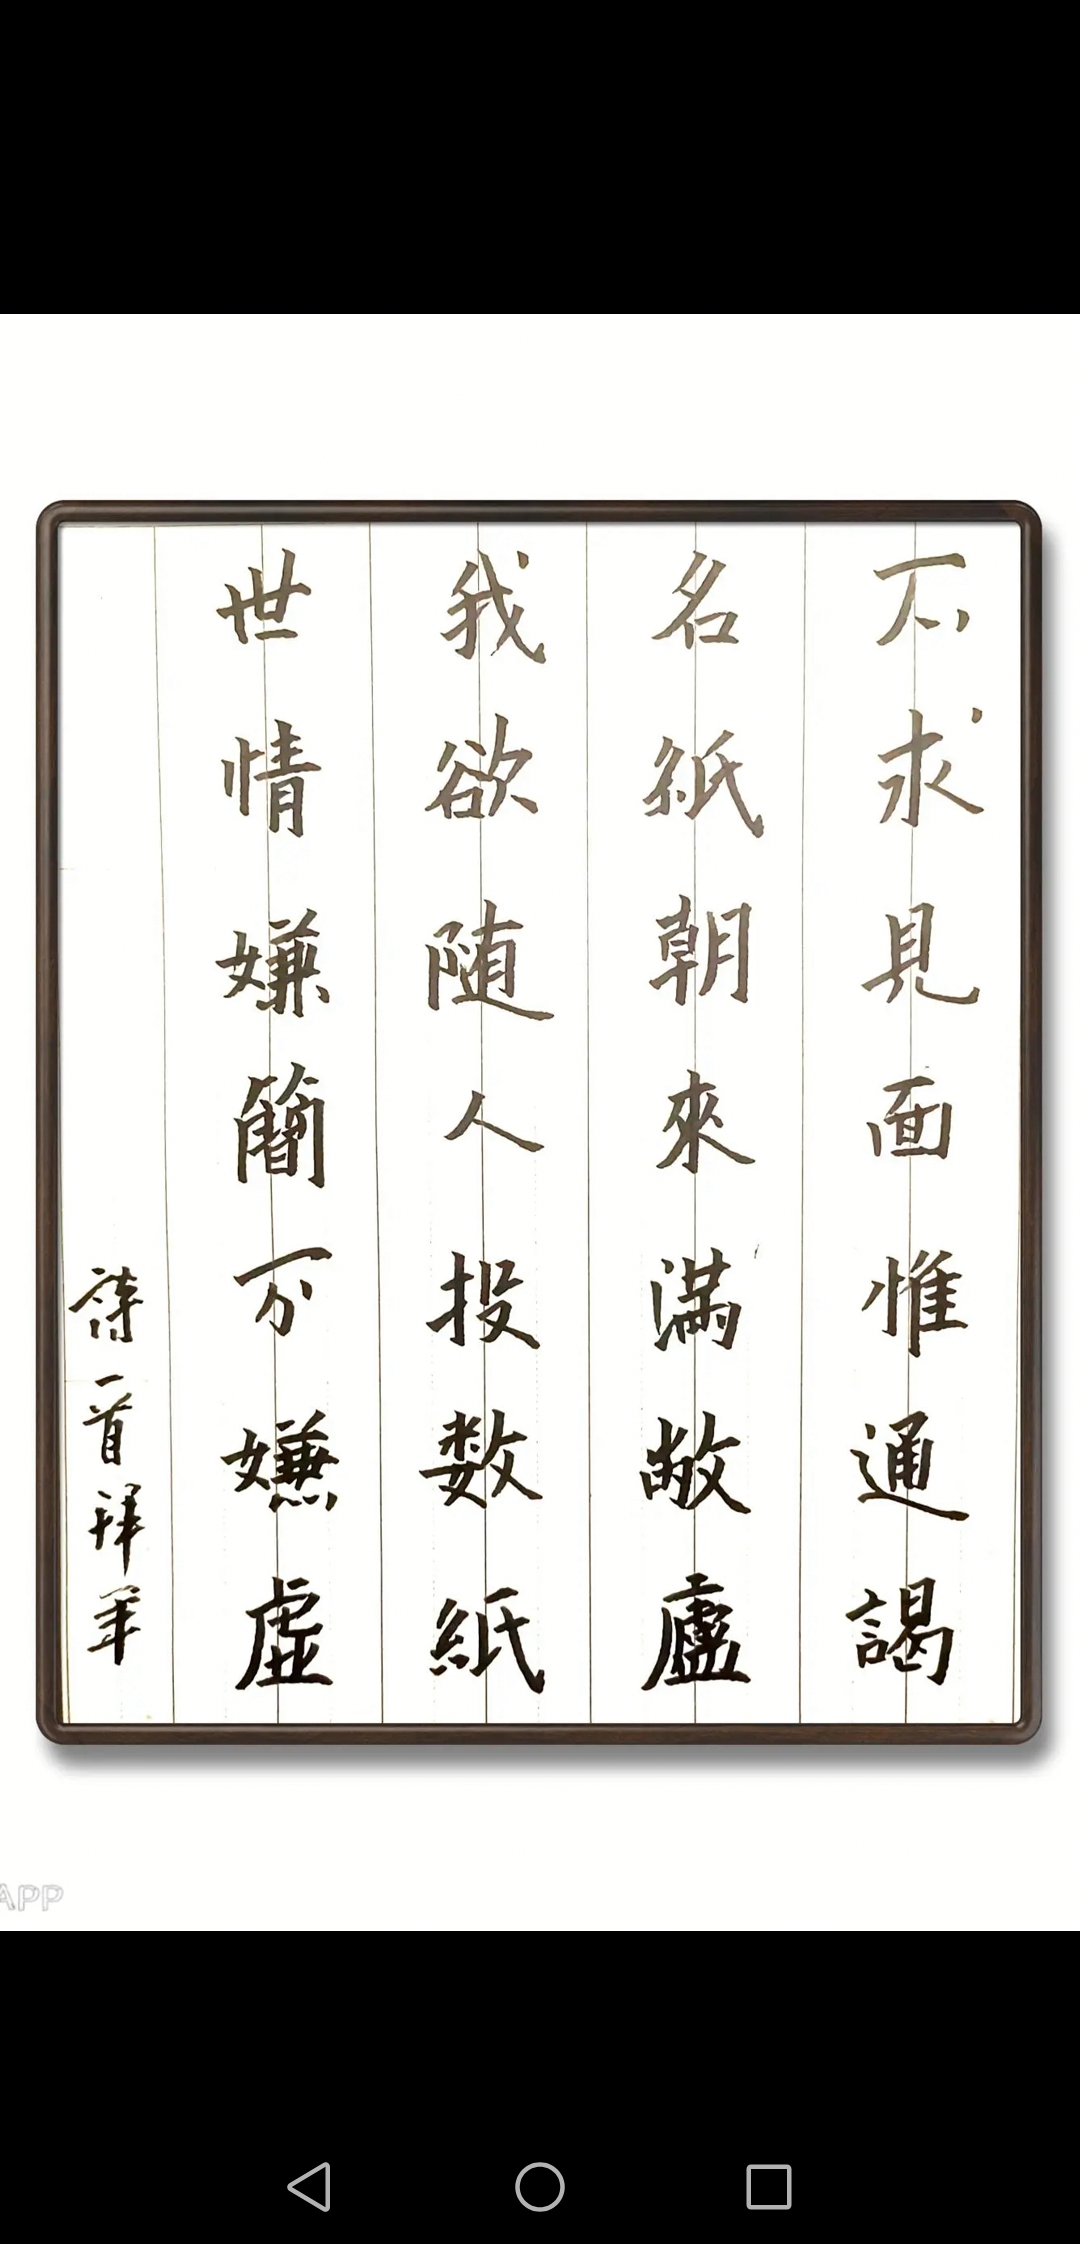 不求見面惟通謁
名紙朝來滿敝廬
我欲随人投数紙
世情嫌簡不嫌虛
詩一首拜年
APP